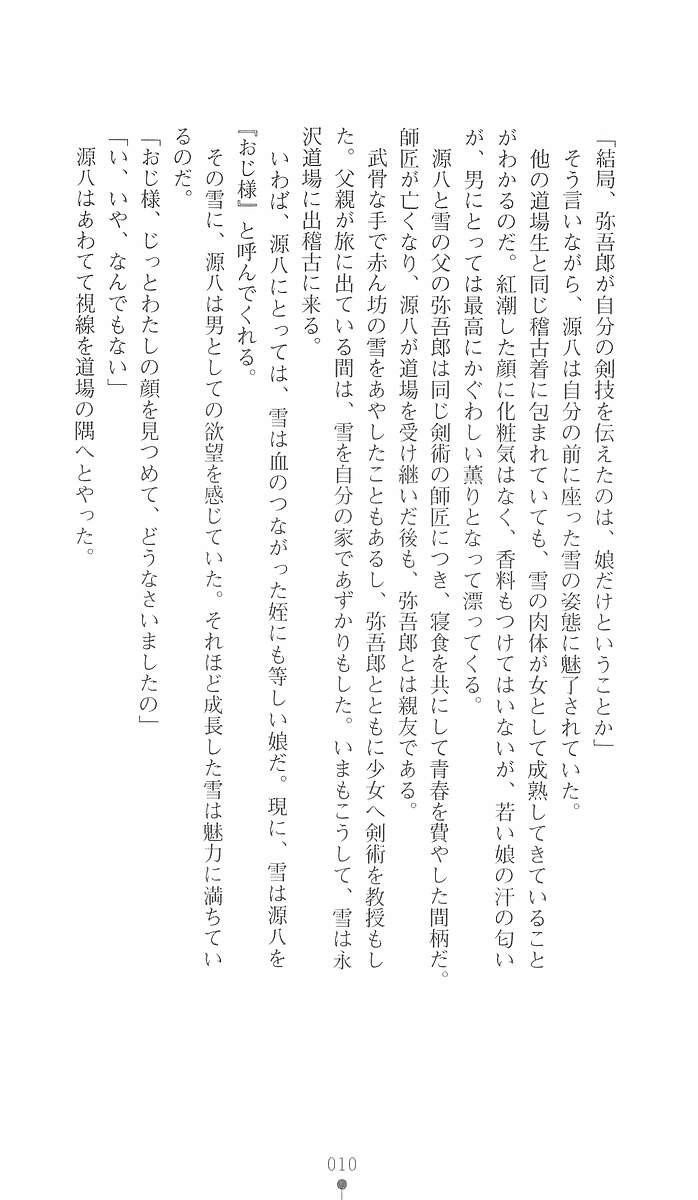 「結局、弥吾郎が自分の剣技を伝えたのは、娘だけということか」
そう言いながら、源八は自分の前に座った雪の姿態に魅了されていた。
他の道場生と同じ稽古着に包まれていても、雪の肉体が女として成熟してきていること
がわかるのだ。紅潮した顔に化粧気はなく、香料もつけてはいないが、若い娘の汗の匂い
が、男にとっては最高にかぐわしい薫りとなって漂ってくる。
源八と雪の父の弥吾郎は同じ剣術の師匠につき、寝食を共にして青春を費やした間柄だ。
師匠が亡くなり、源八が道場を受け継いだ後も、弥吾郎とは親友である。
武骨な手で赤ん坊の雪をあやしたこともあるし、弥吾郎とともに少女へ剣術を教授もし
た。父親が旅に出ている間は、雪を自分の家であずかりもした。いまもこうして、雪は永
沢道場に出稽古に来る。
いわば、源八にとっては、雪は血のつながった姪にも等しい娘だ。現に、雪は源八を
『おじ様』と呼んでくれる。
その雪に、源八は男としての欲望を感じていた。それほど成長した雪は魅力に満ちてい
るのだ。
「おじ様、じっとわたしの顔を見つめて、どうなさいましたの」
「い、いや、なんでもない」
源八はあわてて視線を道場の隅へとやった。
010